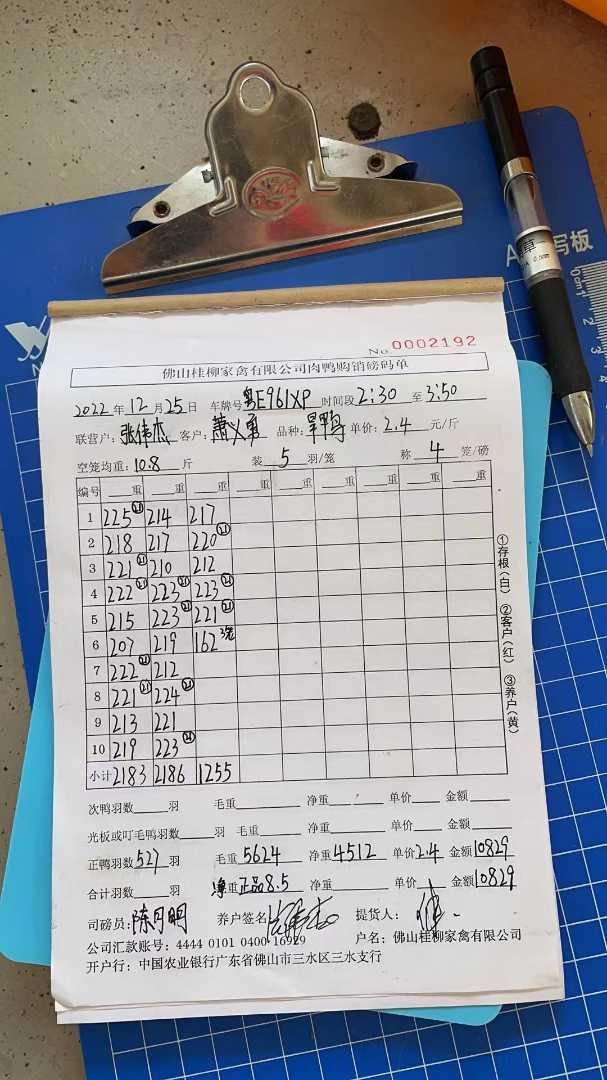 写板
0.5mm
0cm 1 2 3
No 0002192
佛山桂柳家禽有限公司肉鸭购销磅码单
2022年12月25日 车牌号粤E961XP 时间段2:30至3:50
联营户:张伟杰 客户:萧义勇 品种:旱鸭 单价:2.4元/斤
空笼均重:10.8斤 装5羽/笼 称4笼/磅
编号 重 重 重 重 重 重 重 重
1 225㉑ 214 217
2 218 217 220㉑
3 221㉑ 210 212
4 222㉑ 223㉑ 223㉑
5 215 223㉑ 221㉑
6 207 219 162 3笼
7 222㉑ 212
8 221㉑ 224㉑
9 213 221
10 219 223㉑
小计 2183 2186 1255
①存根(白) ②客户(红) ③养户(黄)
次鸭羽数 羽 毛重 净重 单价 金额
光板或叮毛鸭羽数 羽 毛重 净重 单价 金额
正鸭羽数527羽 毛重5624 净重4512 单价2.4 金额10829
合计羽数 羽 净重正品8.5 净重 单价 金额10829
司磅员:陈丹明 养户签名 提货人:
公司汇款账号:4444 0101 0400 16929 户名:佛山桂柳家禽有限公司
开户行:中国农业银行广东省佛山市三水区三水支行